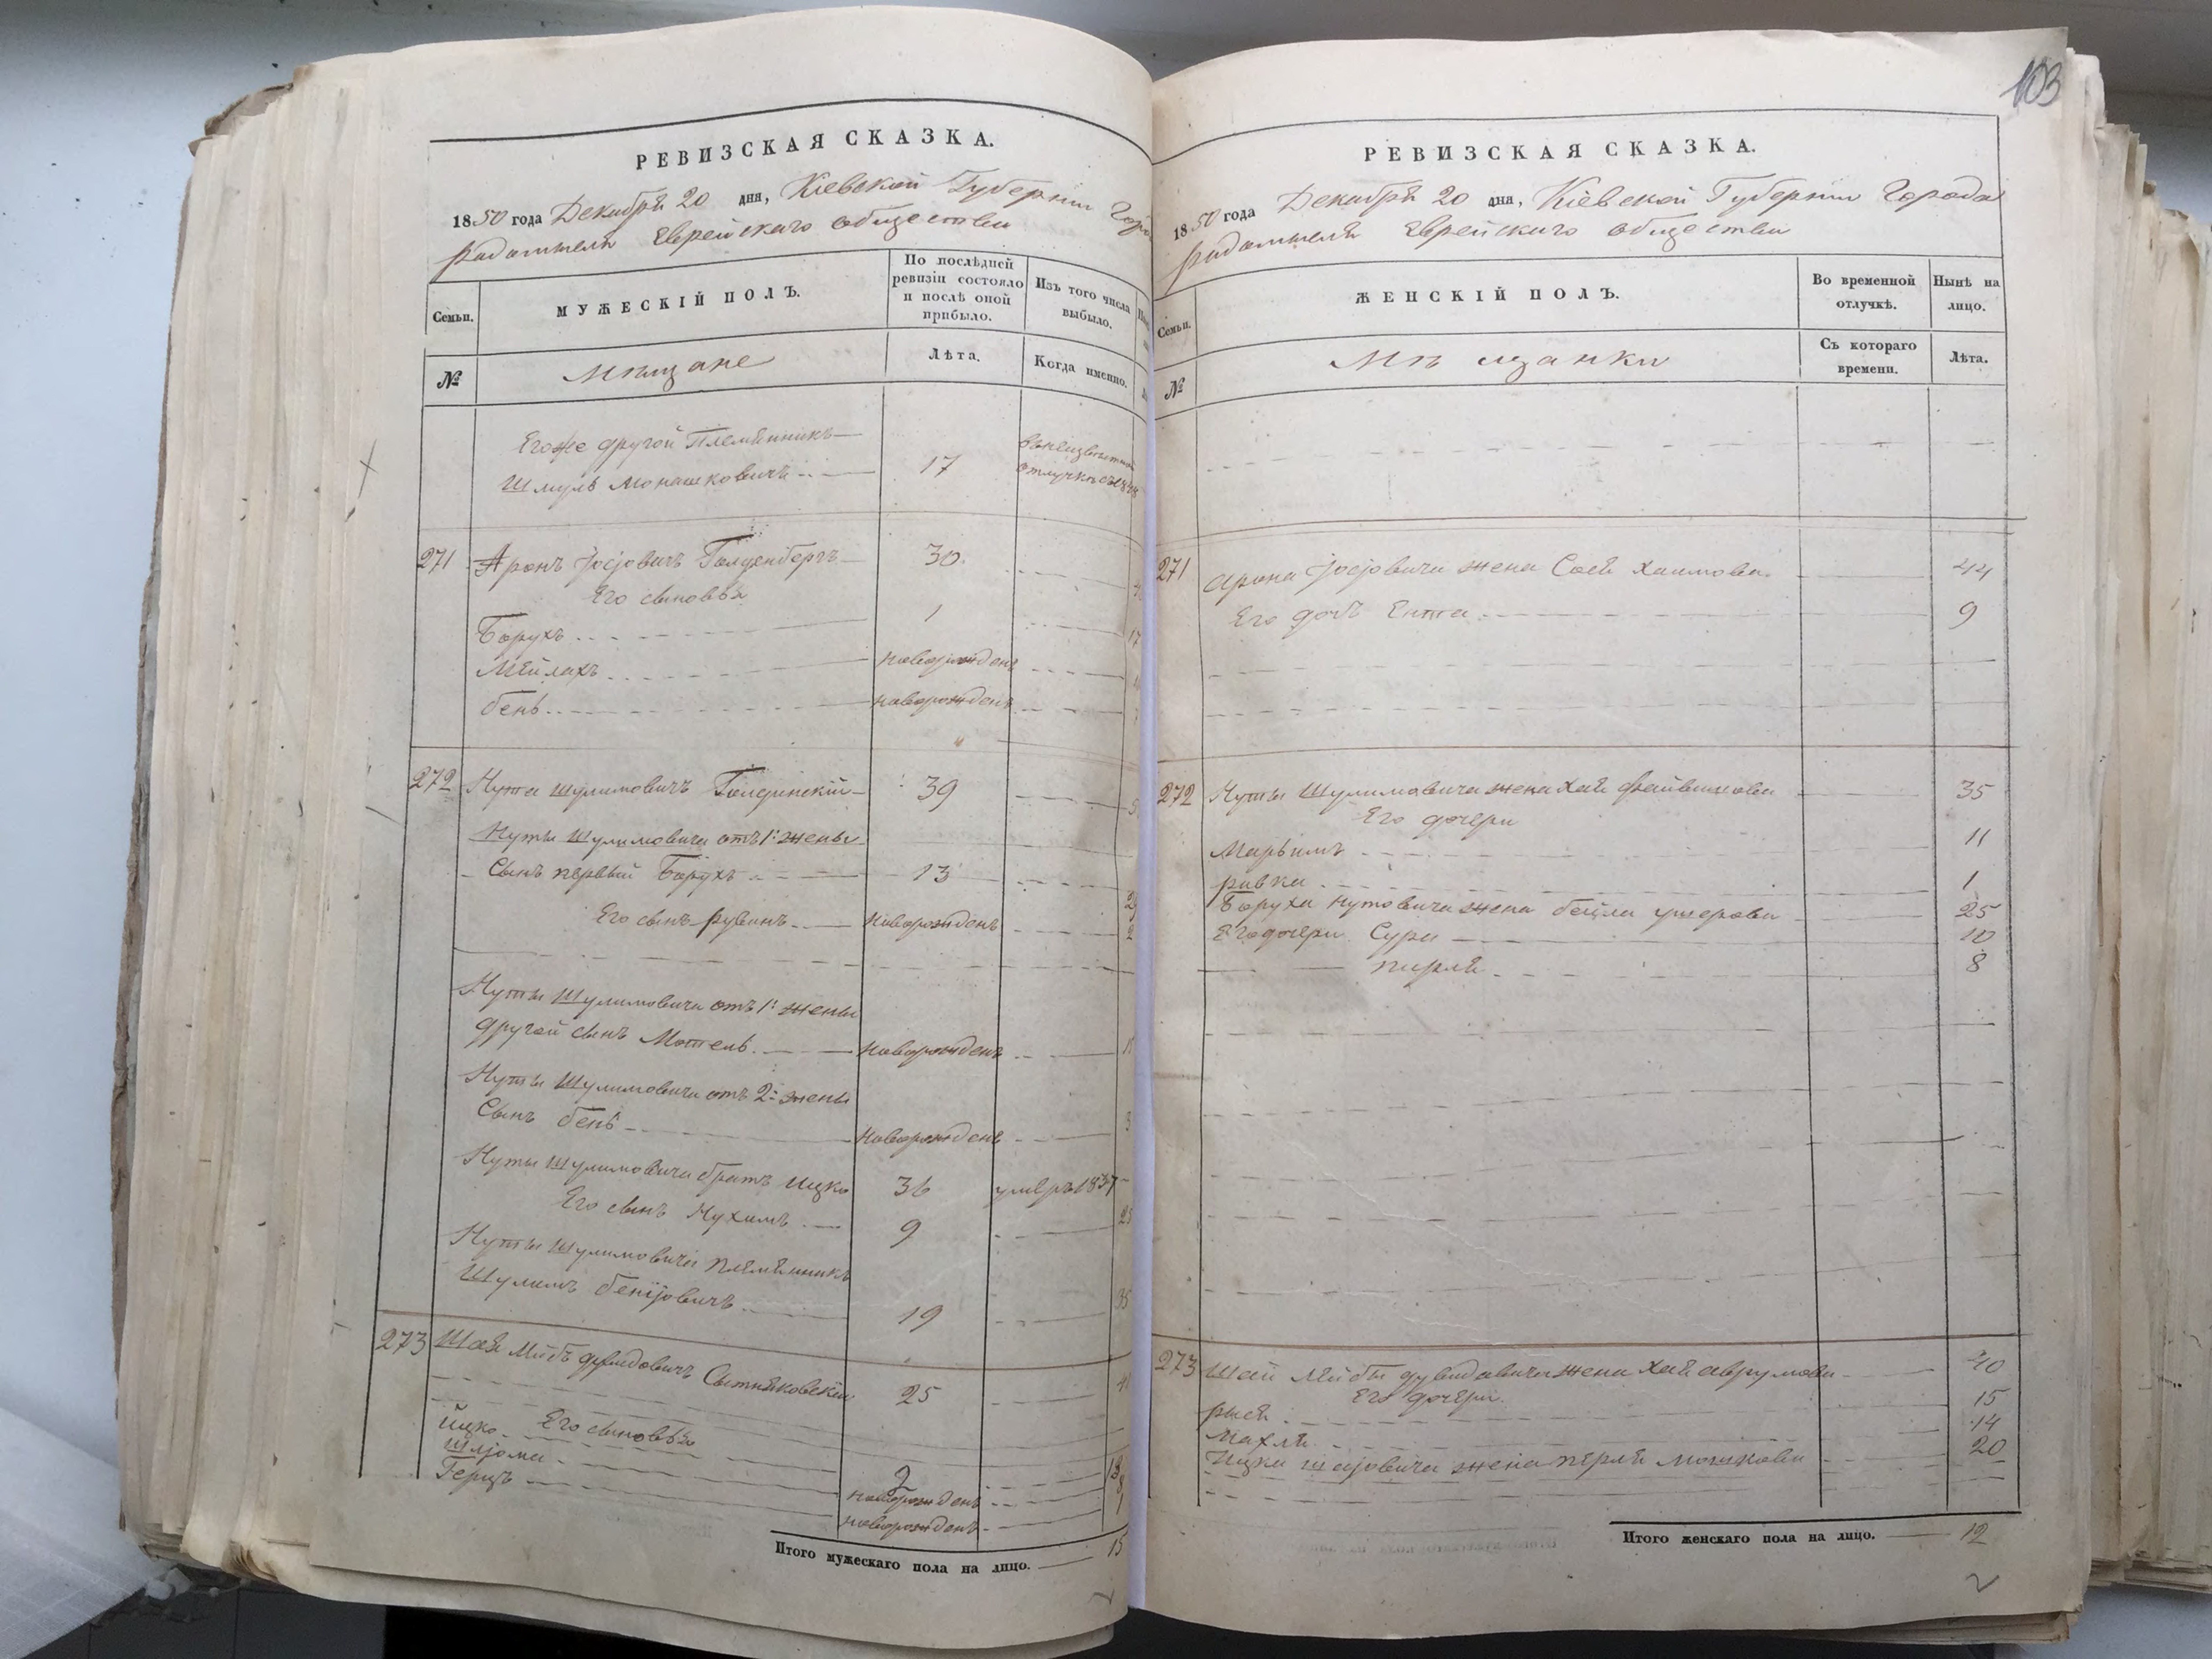 РЕВИЗСКАЯ СКАЗКА.
1850 года Декабря 20 дня, Кіевской Губерніи
Радомысля Еврейскаго общества
Семьи.
МУЖЕСКІЙ ПОЛЪ.
По послѣдней ревизіи состояло и послѣ оной прибыло.
Изъ того числа выбыло.
№
Мѣщане
Лѣта.
Когда именно.
Егоже другой Племянникъ
Шмуль Монашковичъ 17 отлучкѣ съ
271 Аронъ Іосіовичъ Голденбергъ 30
Его сыновья
Борухъ 1
Мейлахъ новорожденъ
бень новорожденъ
272 Нута Шулимовичъ 39
Нуты Шулимовича отъ 1й жены
Сынъ первый Борухъ 13
Его сынъ рувинъ новорожденъ
Нуты Шулимовича отъ 1й жены
другой сынъ Мотель новорожденъ
Нуты Шулимовича отъ 2й жены
Сынъ бень новорожденъ
Нуты Шулимовича братъ Ицко 36 умеръ 1837
Его сынъ Нухимъ 9
Нуты Шулимовича племянникъ
Шулимъ беніовичъ 19
273 Шая Лейбъ дувидовичъ 25
Его сыновья
Ицко 2
Шліома новорожденъ
Герцъ новорожденъ
Итого мужескаго пола на лицо. 15
103
РЕВИЗСКАЯ СКАЗКА.
1850 года Декабря 20 дня, Кіевской Губерніи Города
Радомысля Еврейскаго общества
Семьи.
ЖЕНСКІЙ ПОЛЪ.
Во временной отлучкѣ.
Нынѣ на лицо.
№
Мѣщанки
Съ котораго времени.
Лѣта.
271 Арона Іосіовича жена Сося хаимова 44
Его дочь Ента 9
272 Нуты Шулимовича жена Хая 35
Его дочери
Марьимъ 11
ривка 1
Боруха Нутовича жена бейла ушерова 25
Его дочери Сура 10
пирля 8
273 Шаи Лейбы дувидовича жена хая аврумова 40
Его дочери
рыся 15
Махля 14
Ицка шаіовича жена перля мошкова 20
Итого женскаго пола на лицо. 12